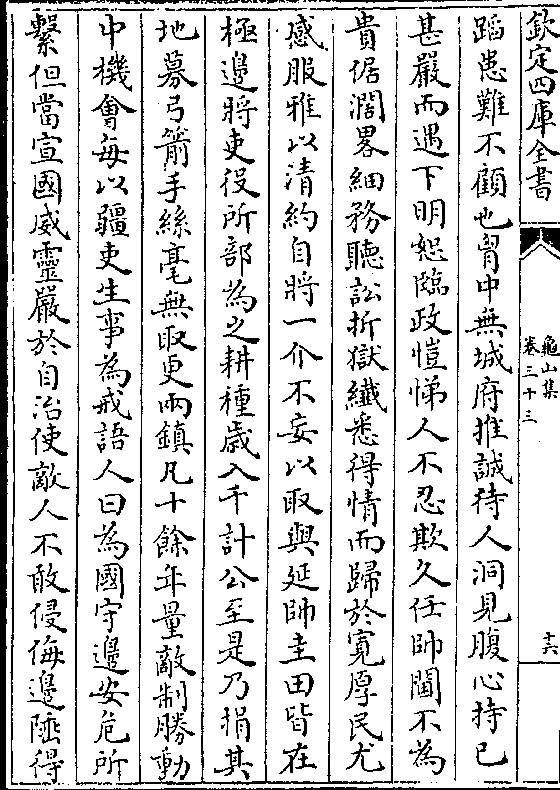 欽定四庫全書
龜山集
卷三十三
十六
蹈患難不顧也胷中無城府推誠待人洞見腹心持已
甚嚴而遇下明恕臨政愷悌人不忍欺久任帥閫不為
貴倨濶畧細務聽訟折獄纎悉得情而歸於寛厚民尤
感服雅以清約自將一介不妄以取與延帥圭田皆在
極邊將吏役所部為之耕種嵗入千計公至是乃捐其
地募弓箭手絲毫無取更兩鎮凡十餘年量敵制勝動
中機會每以疆吏生事為戒語人曰為國守邊安危所
繫但當宣國威靈嚴於自治使敵人不敢侵侮邊陲得